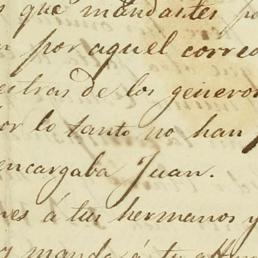 que mandastes
por aquel correo
de los generos
por lo tanto no han
encargaba Juan.
á tus hermanos y
manda á tu